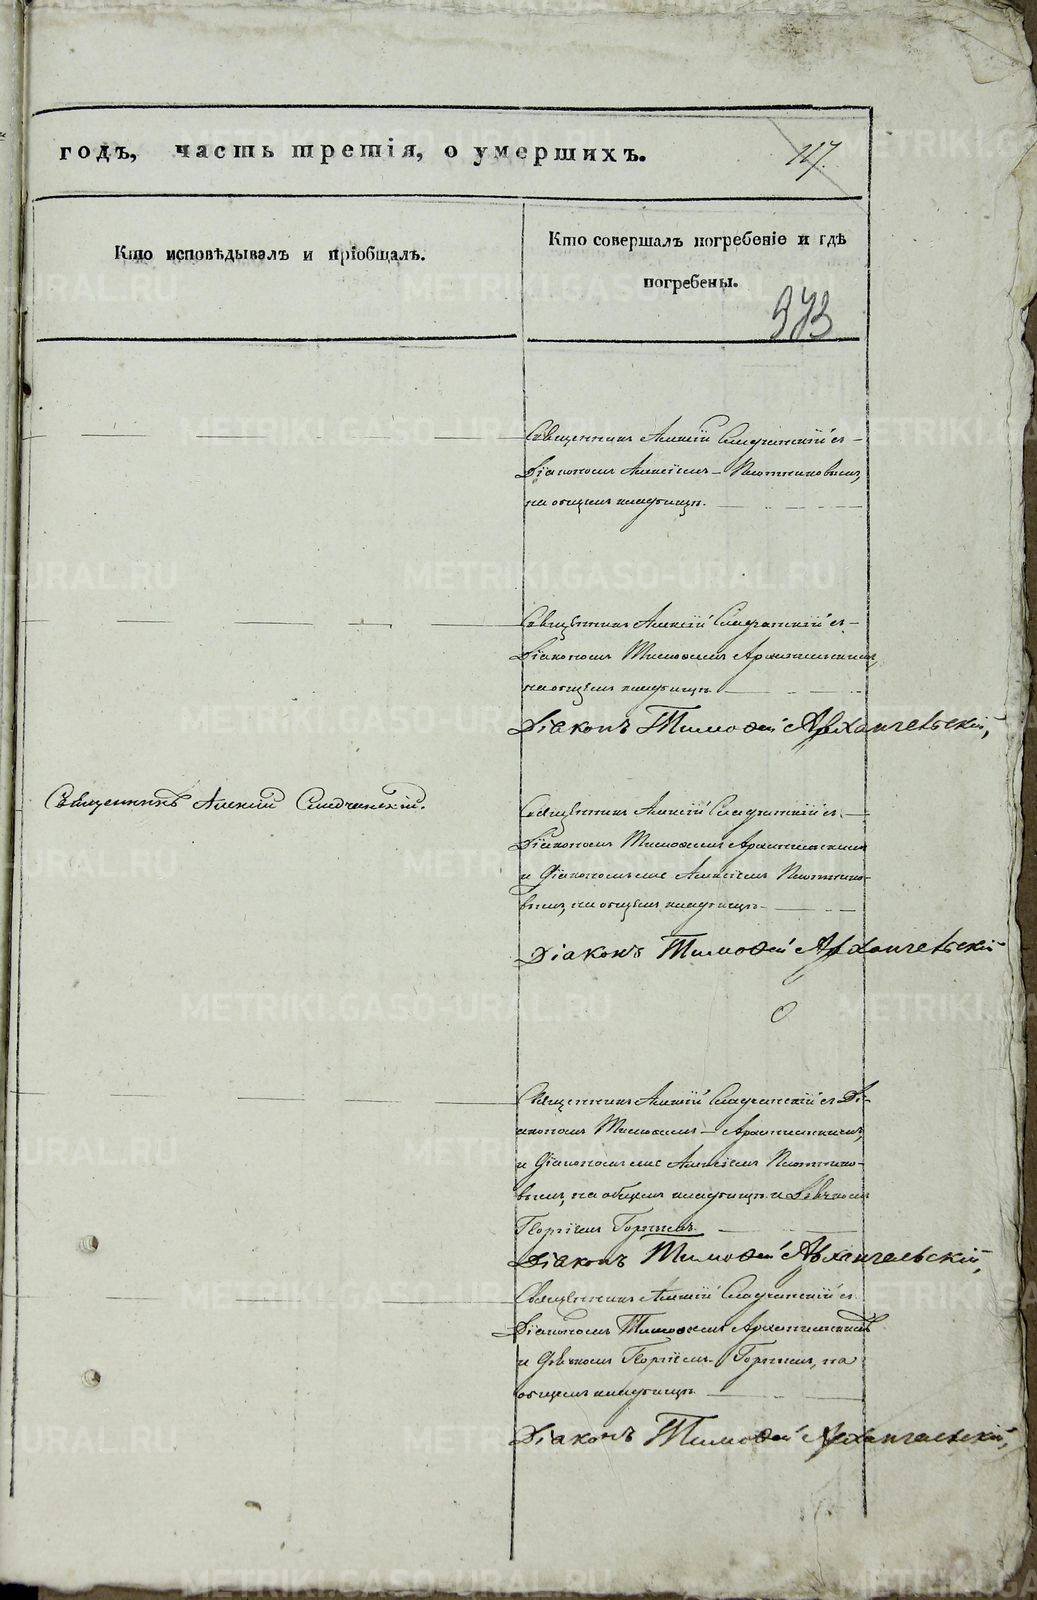 годъ, часть третія, о умершихъ.
117.
Кто исповѣдывалъ и пріобщалъ.
Кто совершалъ погребеніе и гдѣ
погребены.
373
Священникъ Алексій съ
Діакономъ Алексіемъ Плотниковымъ,
на общемъ кладбищѣ.
Священникъ Алексій съ
Діакономъ Тимофеемъ Архангельскимъ,
на общемъ кладбищѣ.
Діаконъ Тимофей Архангельскій,
Священникъ Алексій
Священникъ Алексій съ
Діакономъ Тимофеемъ Архангельскимъ
и Діакономъ же Алексіемъ Плотнико-
вымъ, на общемъ кладбищѣ.
Діаконъ Тимофей Архангельскій
Священникъ Алексій съ Ді-
акономъ Тимофеемъ Архангельскимъ,
и Діакономъ же Алексіемъ Плотнико-
вымъ, на общемъ кладбищѣ и Дьячкомъ
Георгіемъ Горнымъ.
Діаконъ Тимофей Архангельскій,
Священникъ Алексій съ
Діакономъ Тимофеемъ Архангельскимъ
и Дьячкомъ Георгіемъ Горнымъ, на
общемъ кладбищѣ
Діаконъ Тимофей Архангельскій,
METRIKI.GASO-URAL.RU